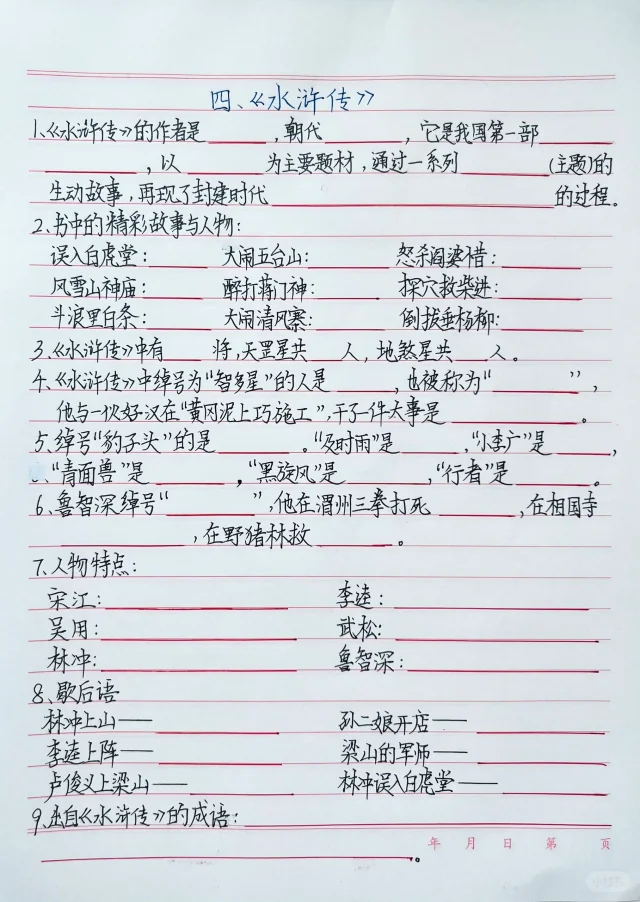 四、《水浒传》
1、《水浒传》的作者是________,朝代________,它是我国第一部________
________,以________为主要题材,通过一系列________(主题)的
生动故事,再现了封建时代________________的过程。
2、书中的精彩故事与人物:
误入白虎堂:______ 大闹五台山:______ 怒杀阎婆惜:______
风雪山神庙:______ 醉打蒋门神:______ 探穴救柴进:______
斗浪里白条:______ 大闹清风寨:______ 倒拔垂杨柳:______
3、《水浒传》中有____将,天罡星共___人,地煞星共___人。
4、《水浒传》中绰号为“智多星”的人是______,也被称为“________”,
他与一伙好汉在“黄冈泥上巧施工”,干了一件大事是____________。
5、绰号“豹子头”的是________。“及时雨”是______,“小李广”是______,
“青面兽”是________,“黑旋风”是________,“行者”是________。
6、鲁智深绰号“________”,他在渭州三拳打死________,在相国寺
____________,在野猪林救________。
7、人物特点:
宋江:________________ 李逵:________________
吴用:________________ 武松:________________
林冲:________________ 鲁智深:________________
8、歇后语
林冲上山——____________ 孙二娘开店——____________
李逵上阵——____________ 梁山的军师——____________
卢俊义上梁山——____________ 林冲误入白虎堂——____________
9、出自《水浒传》的成语:________________________
年 月 日 第 页
________________________________。